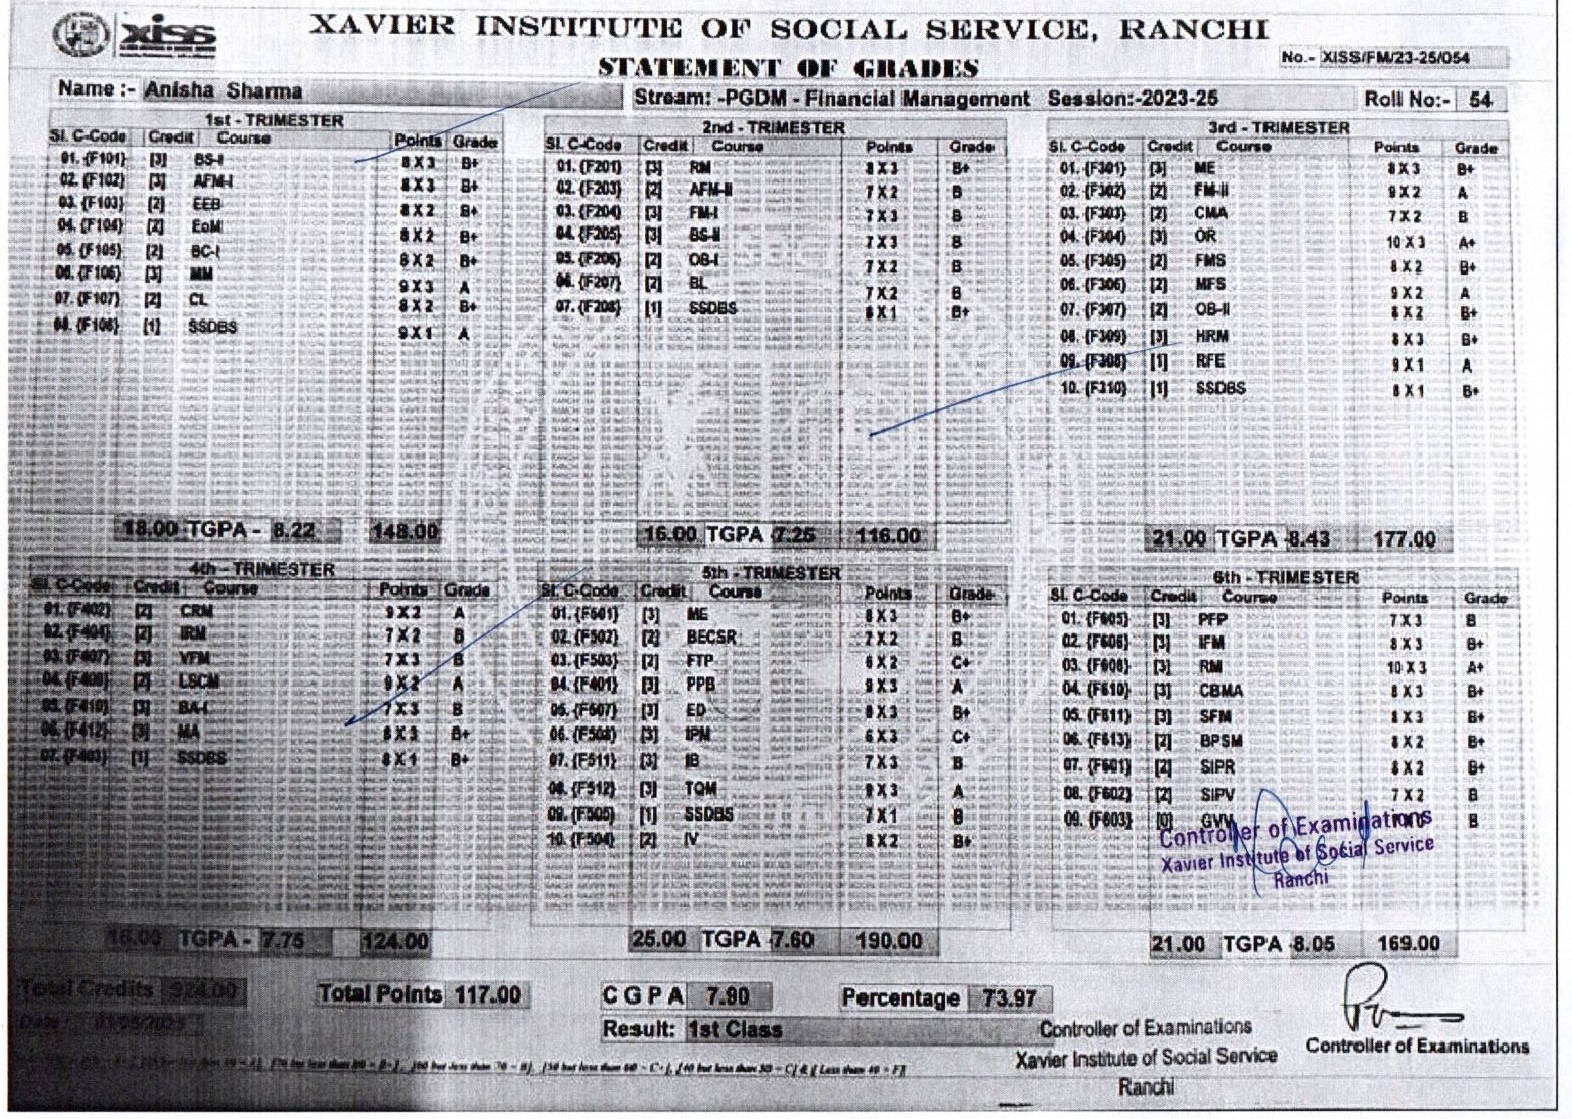 xiss
XAVIER INSTITUTE OF SOCIAL SERVICE, RANCHI
STATEMENT OF GRADES
No.- XISS/FM/23-25/054
Name :- Anisha Sharma
Stream: -PGDM - Financial Management Session:-2023-25 Roll No:- 54
1st - TRIMESTER
Sl. C-Code Credit Course Points Grade
01. {F101} [3] BS-I 8 X 3 B+
02. {F102} [3] AFM-I 8 X 3 B+
03. {F103} [2] EEB 8 X 2 B+
04. {F104} [2] EoM 8 X 2 B+
05. {F105} [2] BC-I 8 X 2 B+
06. {F106} [3] MM 9 X 3 A
07. {F107} [2] CL 8 X 2 B+
08. {F108} [1] SSDBS 9 X 1 A
18.00 TGPA - 8.22 148.00
2nd - TRIMESTER
Sl. C-Code Credit Course Points Grade
01. {F201} [3] RM 8 X 3 B+
02. {F203} [2] AFM-II 7 X 2 B
03. {F204} [3] FM-I 7 X 3 B
04. {F205} [3] BS-II 7 X 3 B
05. {F206} [2] OB-I 7 X 2 B
06. {F207} [2] BL 7 X 2 B
07. {F208} [1] SSDBS 8 X 1 B+
16.00 TGPA 7.25 116.00
3rd - TRIMESTER
Sl. C-Code Credit Course Points Grade
01. {F301} [3] ME 8 X 3 B+
02. {F302} [2] FM-II 9 X 2 A
03. {F303} [2] CMA 7 X 2 B
04. {F304} [3] OR 10 X 3 A+
05. {F305} [2] FMS 8 X 2 B+
06. {F306} [2] MFS 9 X 2 A
07. {F307} [2] OB-II 8 X 2 B+
08. {F309} [3] HRM 8 X 3 B+
09. {F308} [1] RFE 9 X 1 A
10. {F310} [1] SSDBS 8 X 1 B+
21.00 TGPA 8.43 177.00
4th - TRIMESTER
Sl. C-Code Credit Course Points Grade
01. {F402} [2] CRM 9 X 2 A
02. {F404} [2] IRM 7 X 2 B
03. {F407} [3] VFM 7 X 3 B
04. {F409} [2] LSCM 9 X 2 A
05. {F410} [3] BA-I 7 X 3 B
06. {F412} [3] MA 8 X 3 B+
07. {F403} [1] SSDBS 8 X 1 B+
16.00 TGPA - 7.75 124.00
5th - TRIMESTER
Sl. C-Code Credit Course Points Grade
01. {F501} [3] ME 8 X 3 B+
02. {F502} [2] BECSR 7 X 2 B
03. {F503} [2] FTP 6 X 2 C+
04. {F401} [3] PPB 9 X 3 A
05. {F507} [3] ED 8 X 3 B+
06. {F508} [3] IPM 6 X 3 C+
07. {F511} [3] IB 7 X 3 B
08. {F512} [3] TQM 9 X 3 A
09. {F505} [1] SSDBS 7 X 1 B
10. {F504} [2] IV 8 X 2 B+
25.00 TGPA 7.60 190.00
6th - TRIMESTER
Sl. C-Code Credit Course Points Grade
01. {F605} [3] PFP 7 X 3 B
02. {F606} [3] IFM 8 X 3 B+
03. {F608} [3] RM 10 X 3 A+
04. {F610} [3] CBMA 8 X 3 B+
05. {F611} [3] SFM 8 X 3 B+
06. {F613} [2] BPSM 8 X 2 B+
07. {F601} [2] SIPR 8 X 2 B+
08. {F602} [2] SIPV 7 X 2 B
09. {F603} [0] GVV B
Controller of Examinations
Xavier Institute of Social Service
Ranchi
21.00 TGPA 8.05 169.00
Total Credits 924.00 Total Points 117.00 C G P A 7.90 Percentage 73.97
Date : 03/05/2025
Result: 1st Class
Controller of Examinations
Xavier Institute of Social Service
Ranchi
Controller of Examinations
[70 but less than 80 - B+], [60 but less than 70 - B], [50 but less than 60 - C+], [40 but less than 50 - C] & [ Less than 40 - F]